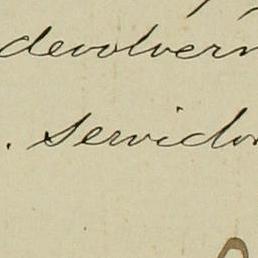 devolverm
. servidor